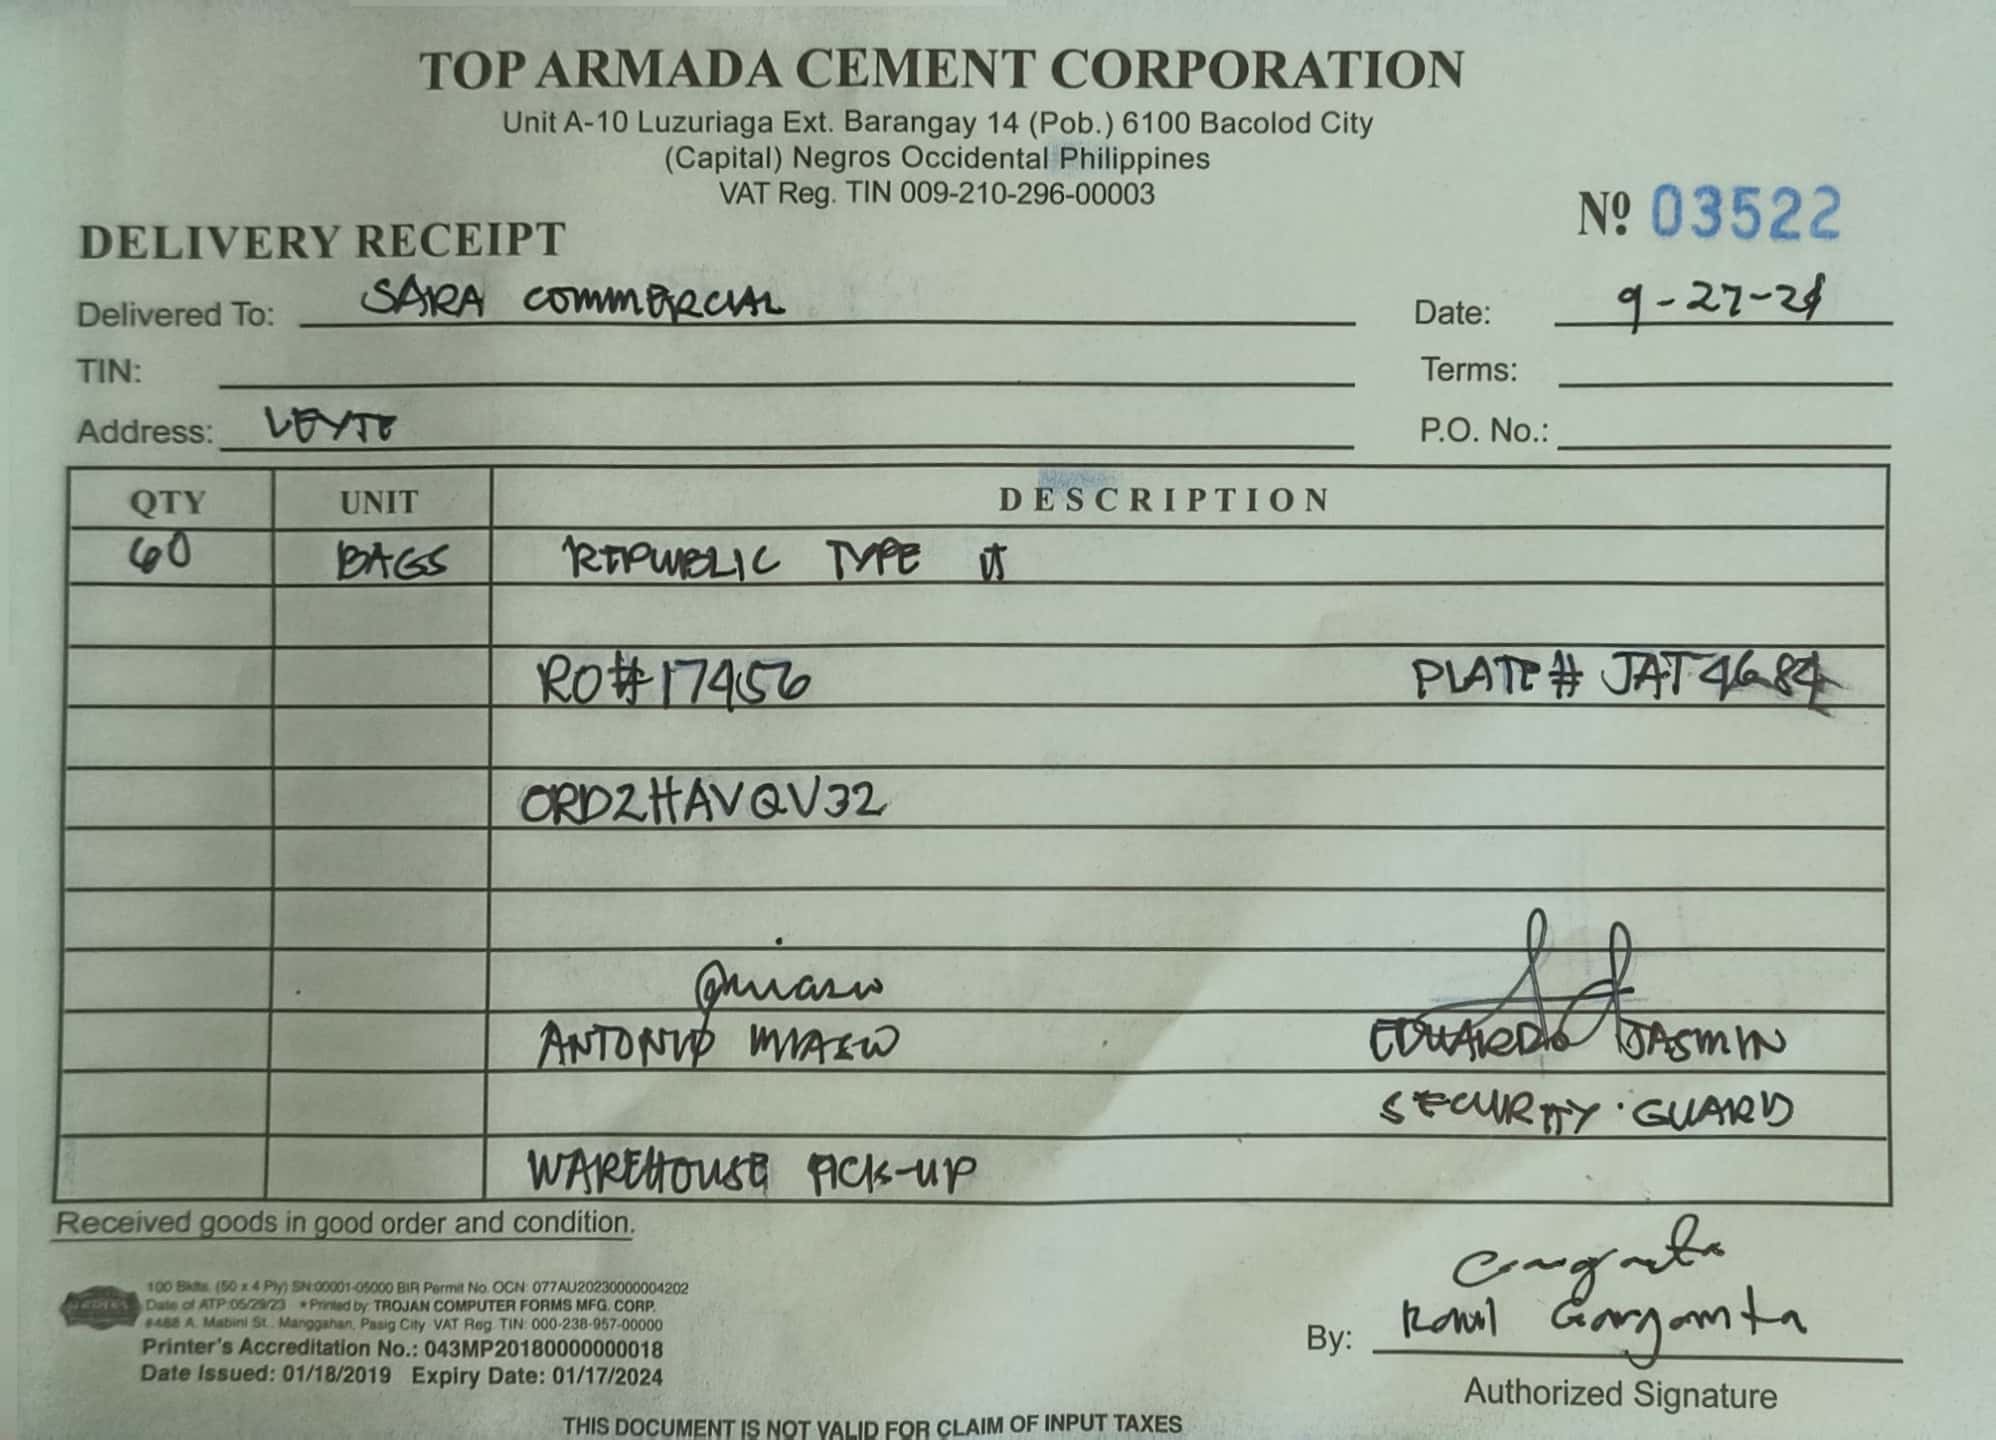 TOP ARMADA CEMENT CORPORATION
Unit A-10 Luzuriaga Ext. Barangay 14 (Pob.) 6100 Bacolod City
(Capital) Negros Occidental Philippines
VAT Reg. TIN 009-210-296-00003
Nº 03522
DELIVERY RECEIPT
Delivered To: SARA COMMERCIAL Date: 9-27-24
TIN: Terms:
Address: LEYTE P.O. No.:
QTY UNIT DESCRIPTION
60 BAGS REPUBLIC TYPE
RO#17456 PLATE# JAT4684
ORD2HAVQV32
ANTONIO EDUARDO JASMIN
SECURITY GUARD
WAREHOUSE PICK-UP
Received goods in good order and condition.
100 Bklts. (50 x 4 Ply) SN:00001-05000 BIR Permit No. OCN: 077AU20230000004202
Date of ATP:05/29/23 * Printed by: TROJAN COMPUTER FORMS MFG. CORP.
#488 A. Mabini St., Manggahan, Pasig City VAT Reg. TIN: 000-238-957-00000
Printer's Accreditation No.: 043MP20180000000018
Date Issued: 01/18/2019 Expiry Date: 01/17/2024
By:
Authorized Signature
THIS DOCUMENT IS NOT VALID FOR CLAIM OF INPUT TAXES